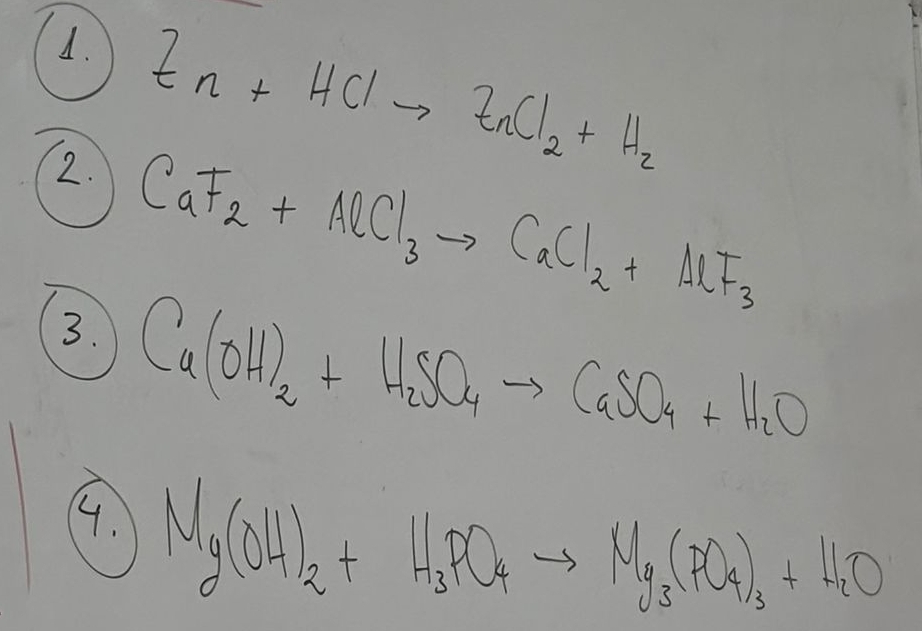 1. Zn + HCl → ZnCl₂ + H₂
2. CaF₂ + AlCl₃ → CaCl₂ + AlF₃
3. Ca(OH)₂ + H₂SO₄ → CaSO₄ + H₂O
4. Mg(OH)₂ + H₃PO₄ → Mg₃(PO₄)₃ + H₂O